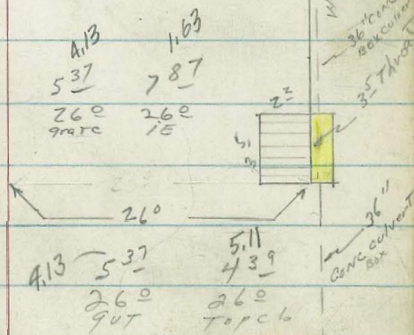 4,13 1,63
5 37 7 87
26 0 26 0
grate IE
36" CONC
BOX culvert
2 2
26 0
4,13 5 37
5,11
4 39
26 0 26 0
gut Top cb
36"
CONC culvert
BOX